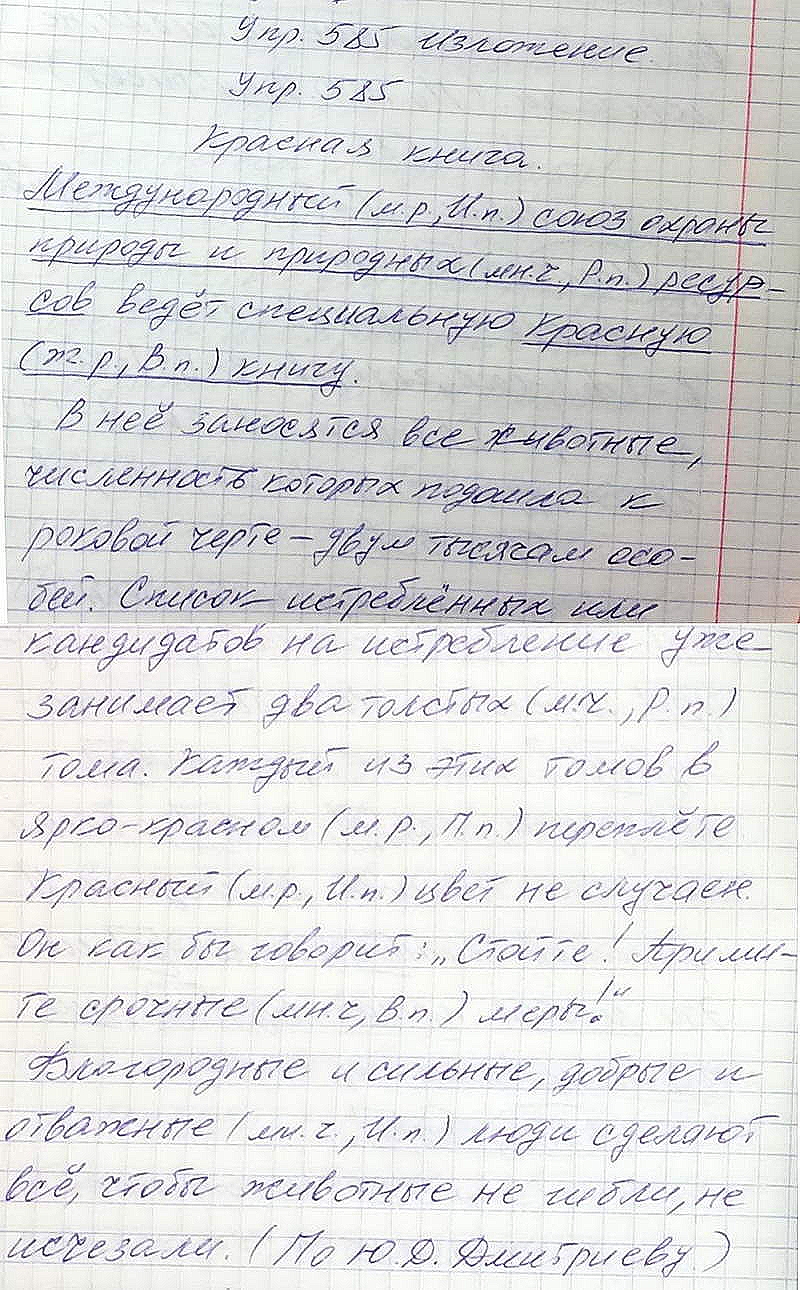 Упр. 585 Изложение.
Упр. 585
Красная книга.
Международный (м.р., И.п.) союз охраны
природы и природных (мн.ч., Р.п.) ресур-
сов ведёт специальную Красную
(ж.р., В.п.) книгу.
В неё заносятся все животные,
численность которых подошла к
роковой черте – двум тысячам осо-
бей. Список истреблённых или
кандидатов на истребление уже
занимает два толстых (м.ч., Р.п.)
тома. Каждый из этих томов в
ярко-красном (м.р., П.п.) переплёте.
Красный (м.р., И.п.) цвет не случаен.
Он как бы говорит: „Стойте! Прими-
те срочные (мн.ч, В.п.) меры!“
Благородные и сильные, добрые и
отважные (мн.ч., И.п.) люди сделают
всё, чтобы животные не гибли, не
исчезали. (По Ю.Д. Дмитриеву.)